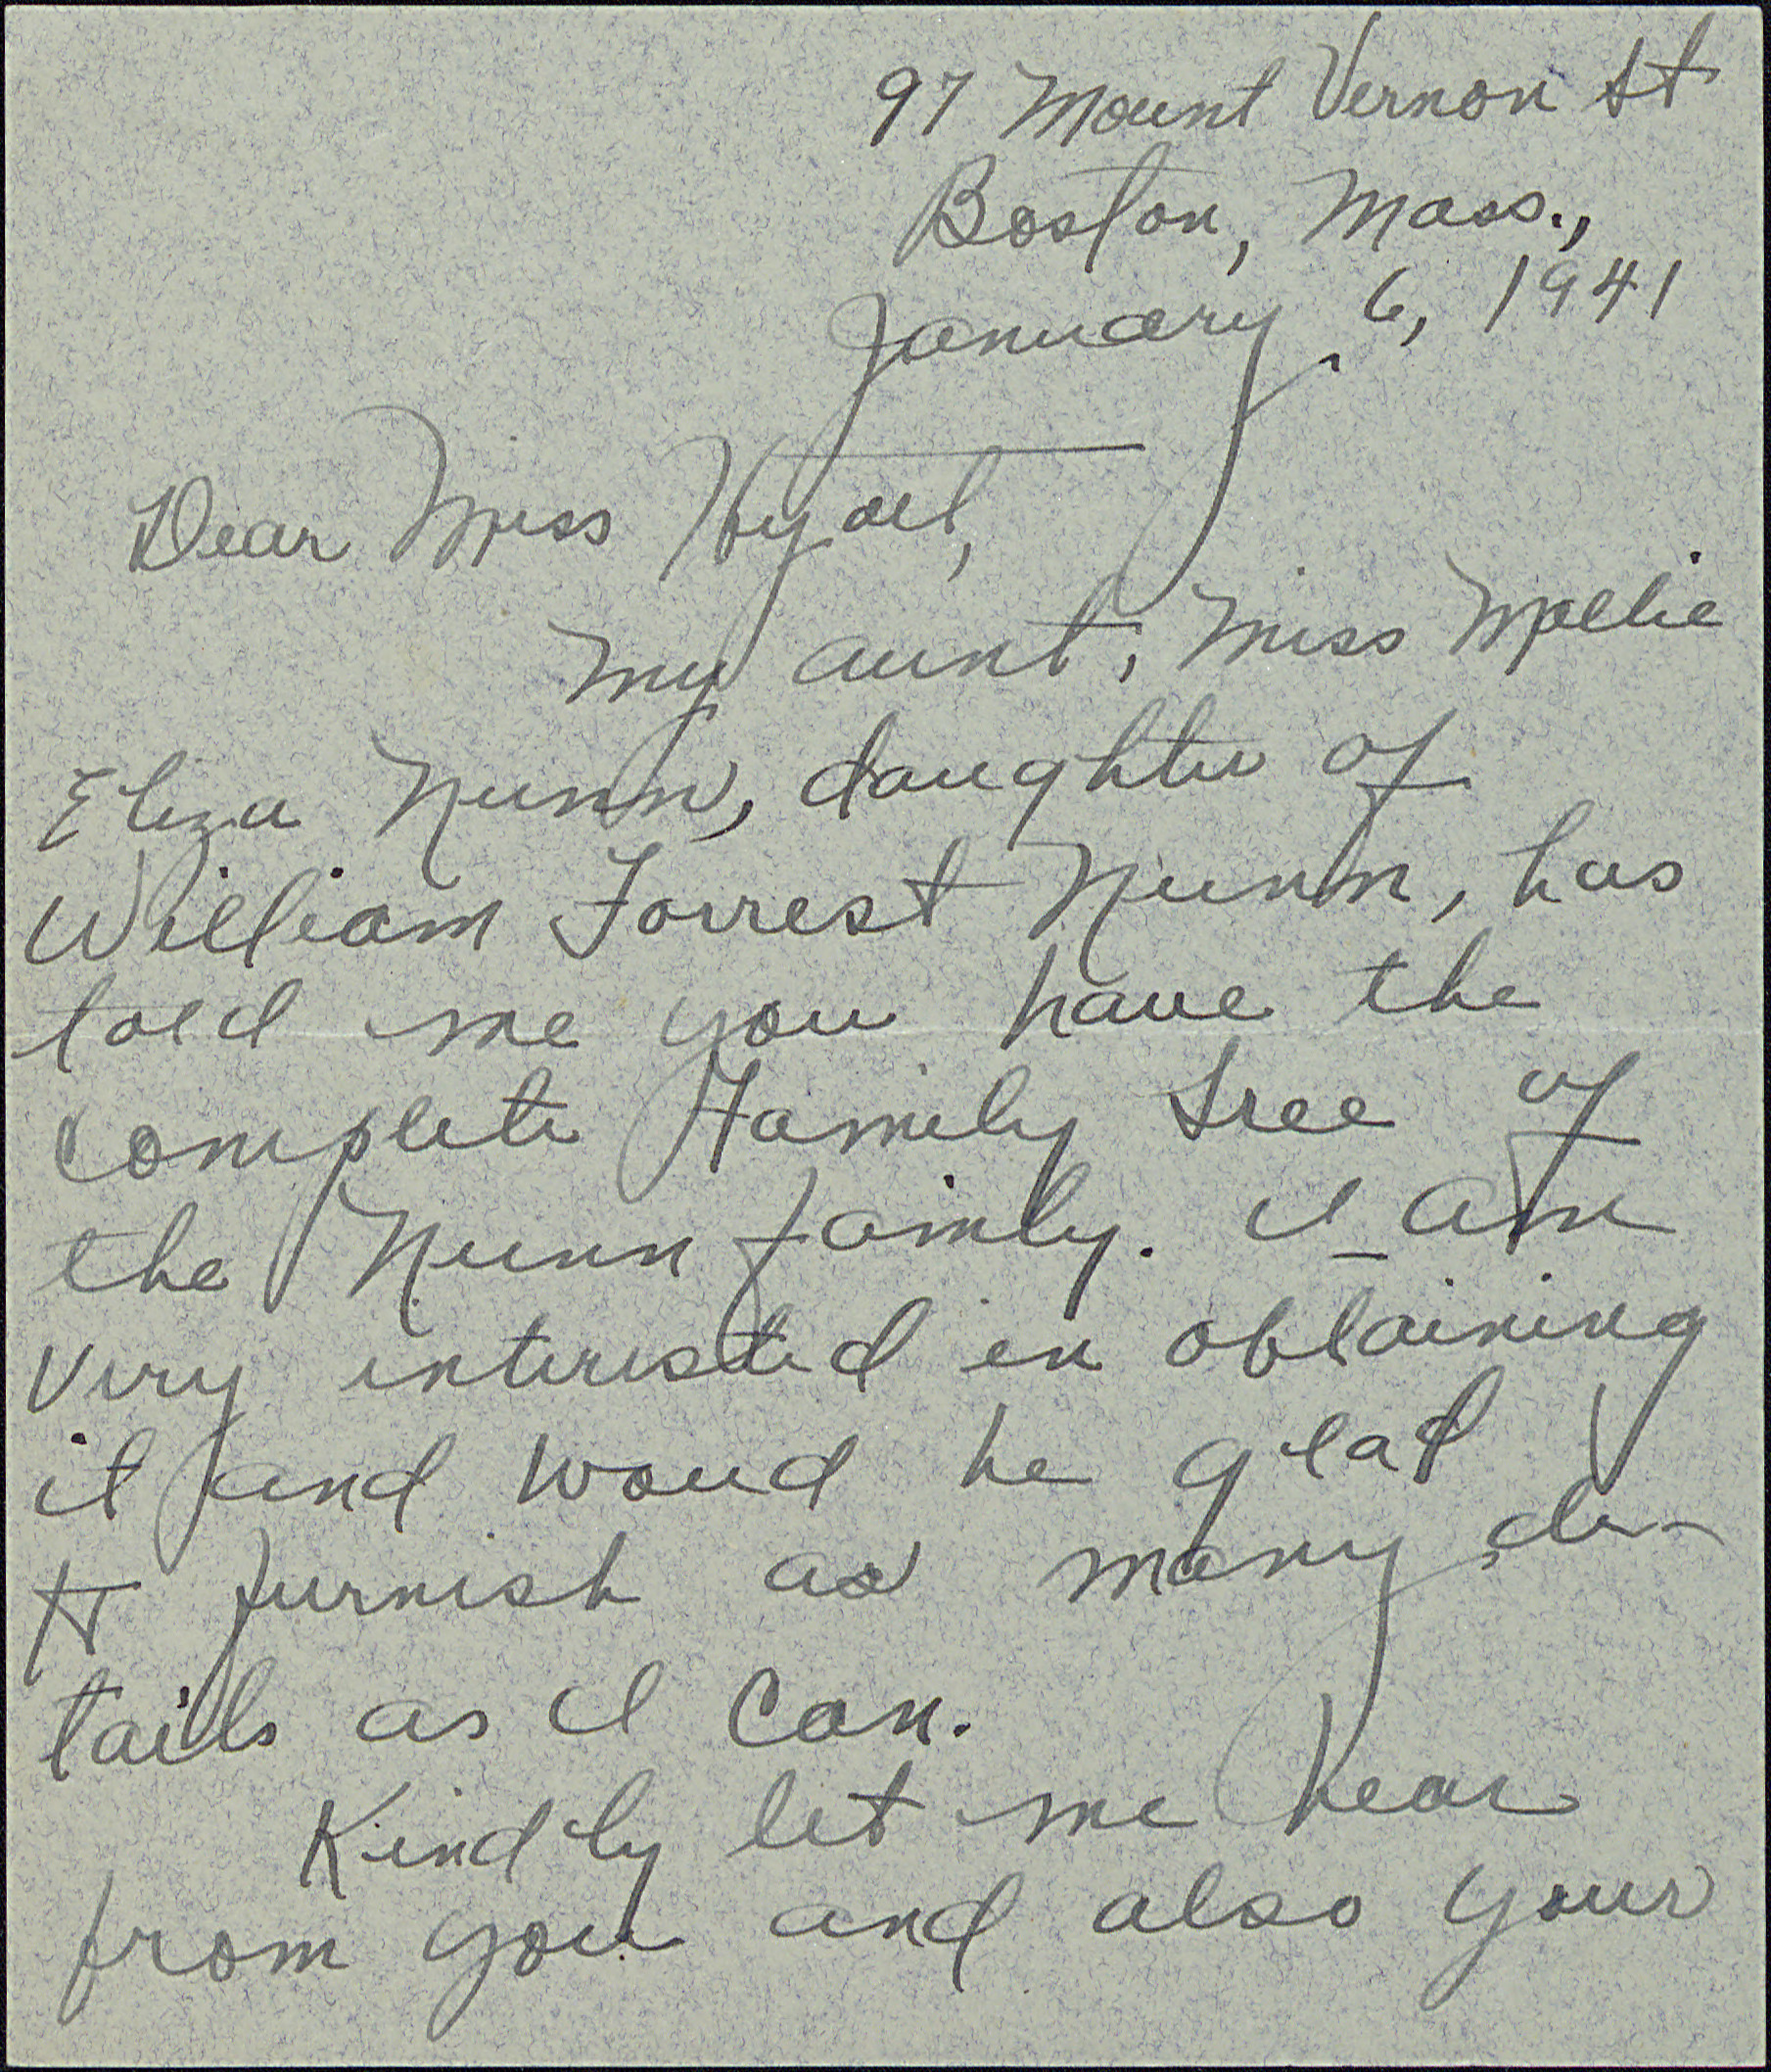 97 Mount Vernon St
Boston, Mass.,
January 6, 1941
Dear Miss Hyatt,
My aunt, Miss Mollie
Eliza Nunn, daughter of
William Forrest Nunn, has
told me you have the
complete Family Tree of
the Nunn family. I am
very interested in obtaining
it and woud be glad
to furnish as many de-
tails as I can.
Kindly let me hear
from you and also your